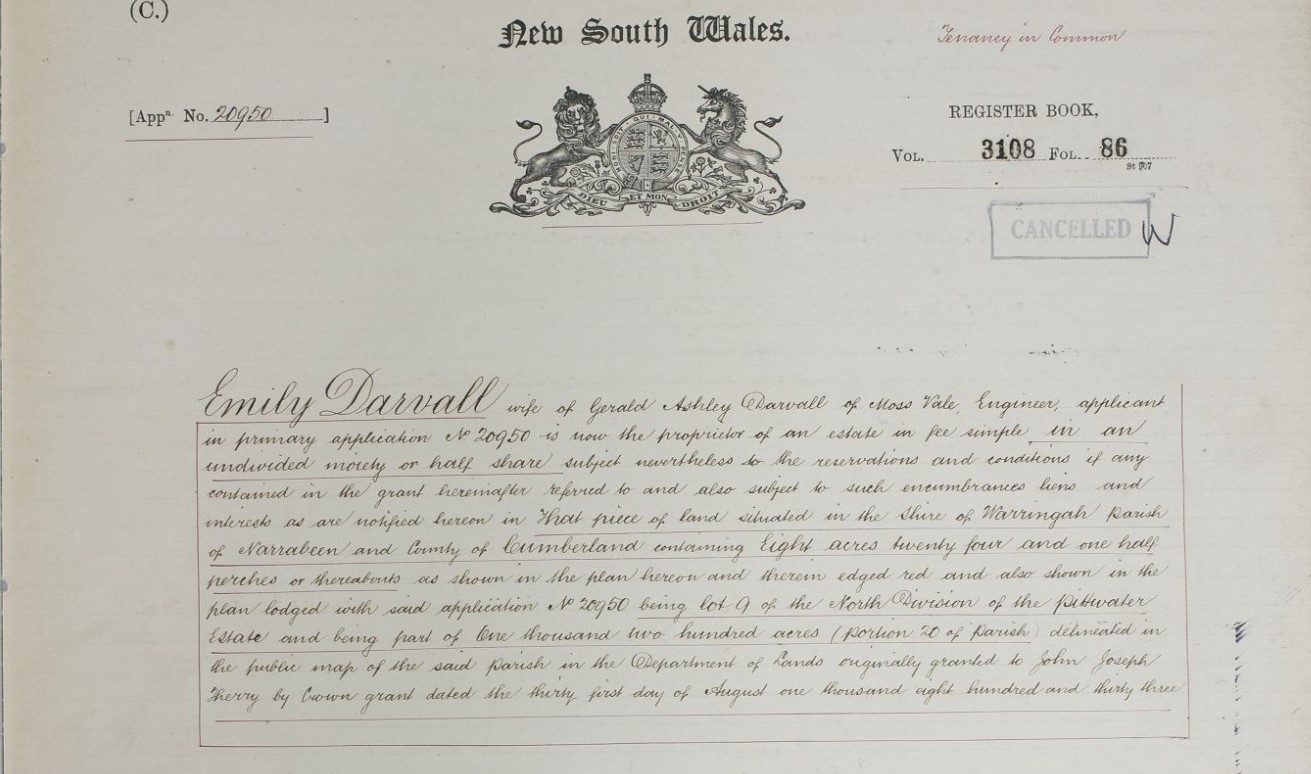 (C.)
New South Wales.
Tenancy in Common
[Appn. No. 20950]
REGISTER BOOK,
VOL. 3108 FOL. 86
CANCELLED
HONI SOIT QUI MAL Y PENSE
DIEU ET MON DROIT
Emily Darvall wife of Gerald Ashley Darvall of Moss Vale, Engineer, applicant
in primary application No 20950 is now the proprietor of an estate in fee simple in an
undivided moiety or half share subject nevertheless to the reservations and conditions if any
contained in the grant hereinafter referred to and also subject to such encumbrances liens and
interests as are notified hereon in That piece of land situated in the Shire of Warringah Parish
of Narrabeen and County of Cumberland containing Eight acres twenty four and one half
perches or thereabouts as shown in the plan hereon and therein edged red and also shown in the
plan lodged with said application No 20950 being lot 9 of the North Division of the Pittwater
Estate and being part of One thousand two hundred acres (portion 20 of Parish) delineated in
the public map of the said Parish in the Department of Lands originally granted to John Joseph
Therry by Crown grant dated the thirty first day of August one thousand eight hundred and thirty three